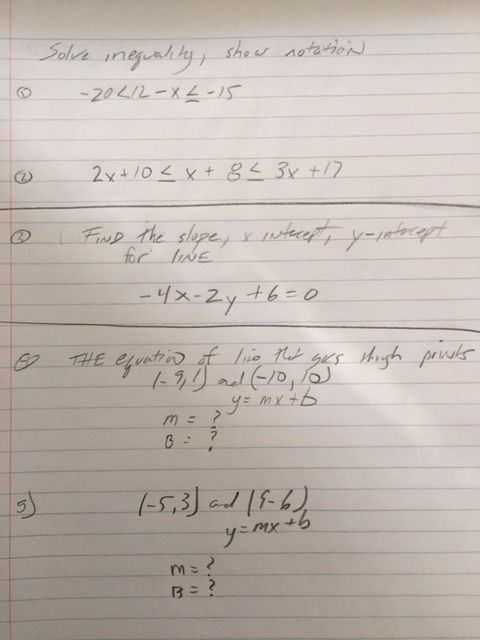 Solve inequality, show notation
① -20<12-x≤-15
② 2x+10≤x+8≤3x+17
③ FIND the slope, x intecept, y-intercept
for LINE
-4x-2y+6=0
④ THE equation of line that goes through points
(-9,1) and (-10,10)
y=mx+b
m = ?
B = ?
5) (-5,3) and (9-6)
y=mx+b
m=?
B=?